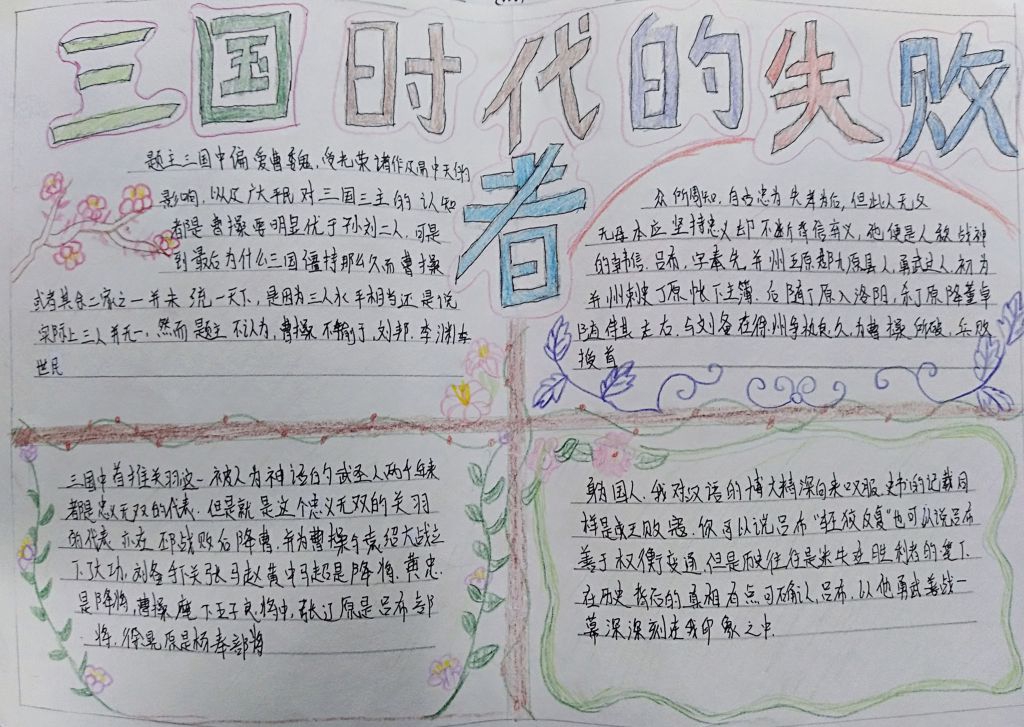 三国时代的失败
者
题主三国中偏爱曹魏,受光荣诸作及高中天的
影响,以及广大平民对三国三主的认知
都是曹操要明显优于孙刘二人,可是
到最后为什么三国僵持那么久而曹操
或者其余二家之一并未统一天下,是因为三人水平相当还是说
实际上三人并无一,然而题主不认为,曹操不输于,刘邦,李渊李
世民
众所周知,自古忠为先孝为后,但此人无父
无母本应坚持忠义却不断背信弃义,他便是人称战神
的吕布.吕布,字奉先,并州五原郡九原县人,勇武过人,初为
并州刺史丁原帐下主簿,后随丁原入洛阳,杀丁原降董卓
随侍其左右,与刘备在徐州争执良久,为曹操所破,兵败
授首
三国中首推关羽这一被人为神话的武圣人两千年来
都是忠义无双的代表,但是就是这个忠义无双的关羽
的代表亦在邳战败后降曹,并为曹操斩袁绍大战立
下大功,刘备手下关张马赵黄中马超是降将,黄忠,
是降将,曹操座下五子良将中,张辽原是吕布部
将,徐晃原是杨奉部将
身为国人,我对汉语的博大精深向来叹服,史书的记载同
样是成王败寇,你可以说吕布"轻狡反复"也可以说吕布
善于权衡变通,但是历史往往是来失去胜利者的笔下
在历史背后的真相有点可确认,吕布,以他勇武善战一
幕深深刻在我印象之中.